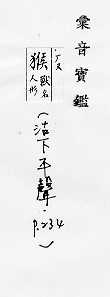 彙音寶鑑
猴 獸名 人形
(沽下平聲. p.234)